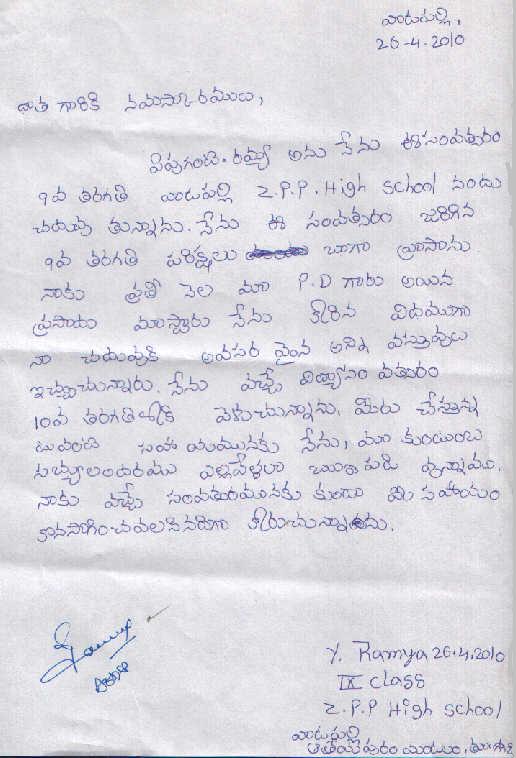 వాడపల్లి,
26-4-2010
దాత గారికి నమస్కారములు,
ఏపుగంటి. రమ్య అను నేను ఈ సంవత్సరం
9వ తరగతి వాడపల్లి Z.P.P. High school నందు
చదువు తున్నాను. నేను ఈ సంవత్సరం జరిగిన
9వ తరగతి పరిక్షలు బాగా వ్రాసాను
నాకు ప్రతి నెల మా P.D గారు అయిన
ప్రసాదు మాస్టారు నేను కోరిన విదముగా
నా చదువుకి అవసర మైన అన్ని వస్తువులు
ఇచ్చుచున్నారు. నేను వచ్చే విద్యాసం వత్సరం
10వ తరగతి కి వెళుచున్నాను. మీరు చేస్తున్న
టువంటి సహా యమునకు నేను, మా కుటుంబ
సభ్యులందరము ఎల్లవేళ్లలా ఋణ పడి వున్నాము.
నాకు వచ్చే సంవత్సరమునకు కుడా మీ సహాయం
కొనసాగించవలసినదిగా కోరుచున్నాను.
Y. Ramya 26.4.2010
IX class
Z.P.P High school
వాడపల్లి
ఆత్రేయపురం మండలం,